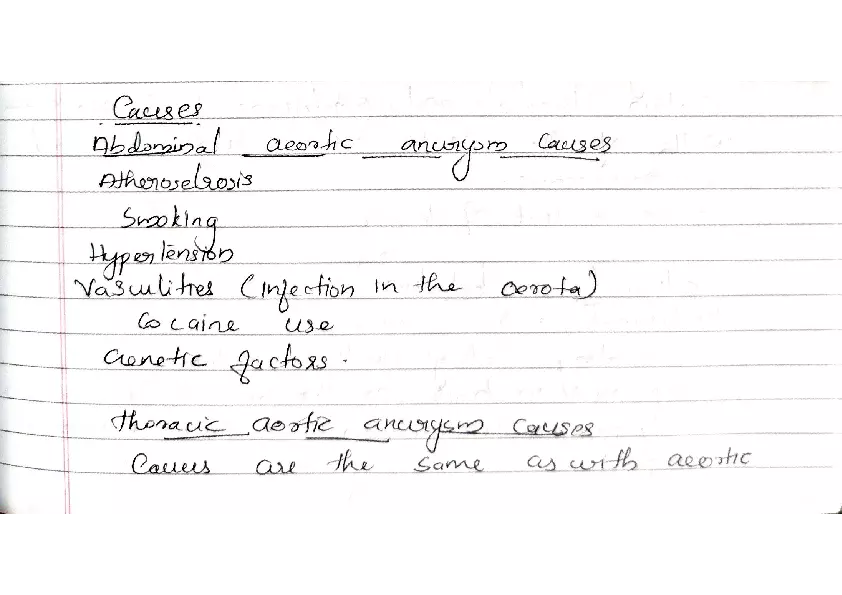 Causes
Abdominal aeortic aneurysm Causes
Atheroselrosis
Smoking
Hypertension
Vasculites (Infection in the aerota)
Cocaine use
Genetic factors.
Thoracic aortic aneurysm causes
Causes are the same as with aeortic